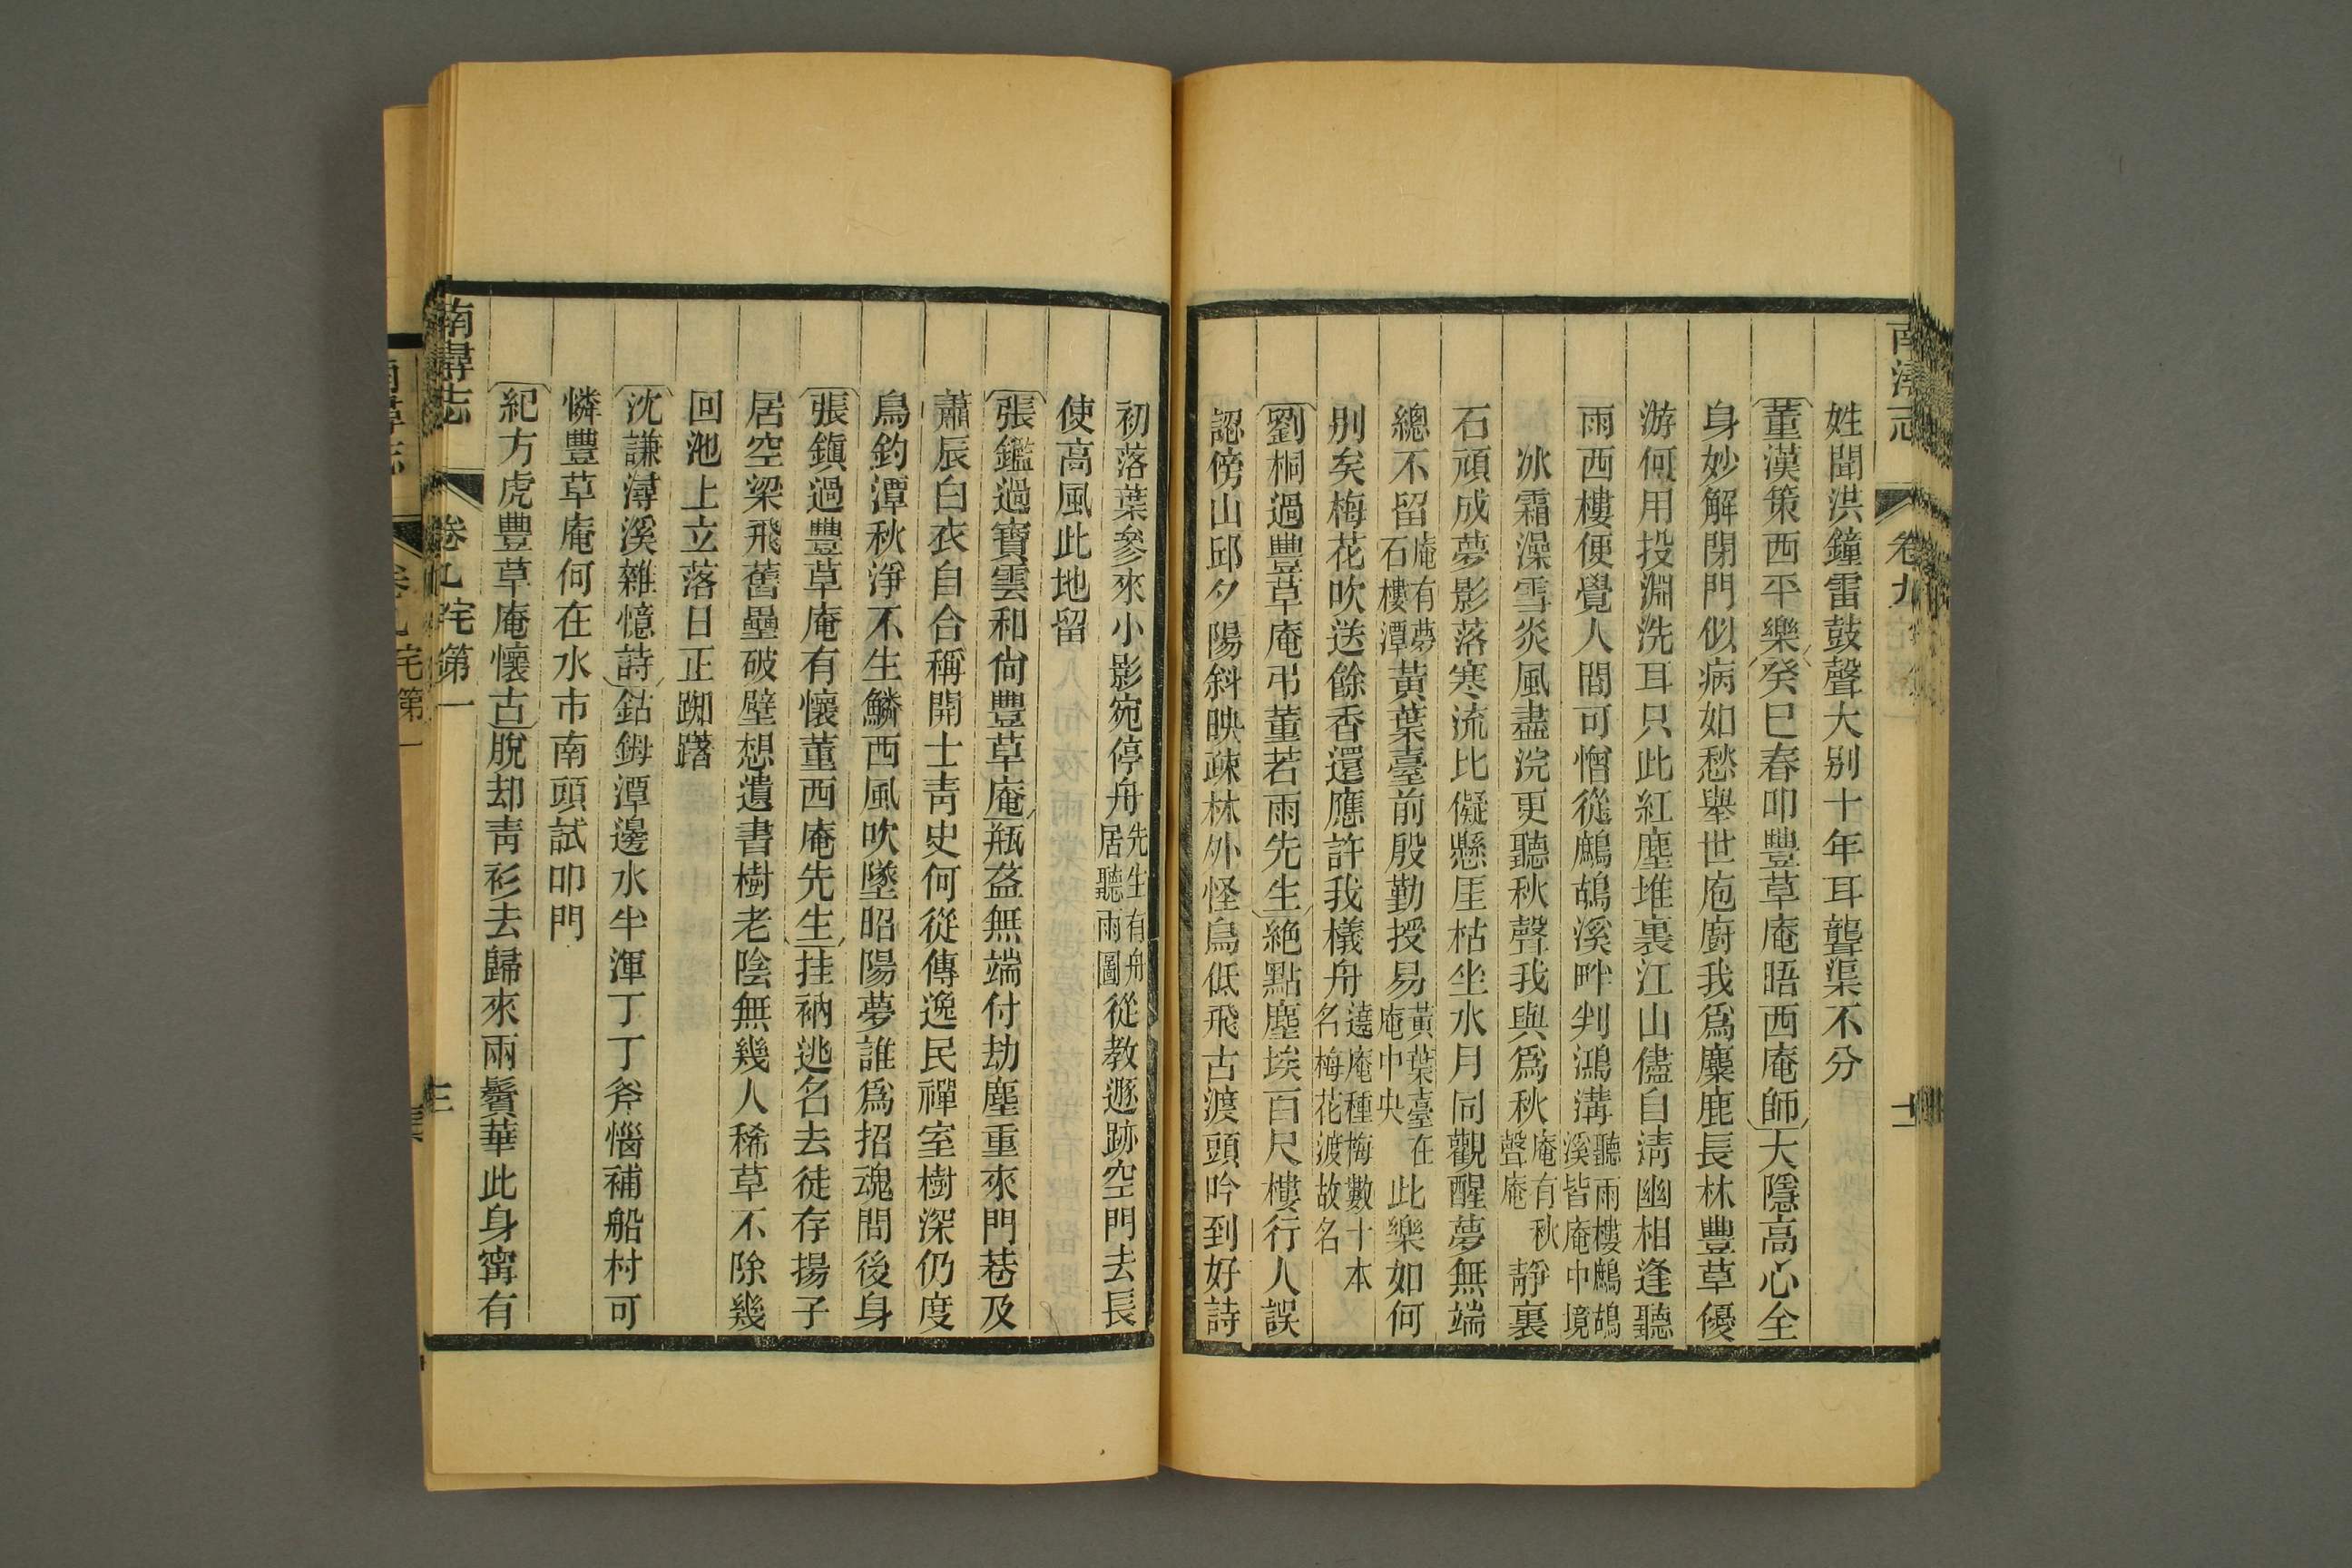 南潯志
卷九
姓聞洪鐘雷鼓聲大別十年耳聾渠不分
董漢策西平樂癸巳春叩豐草庵晤西庵師大隱高心全
身妙解閉門似病如愁舉世庖廚我爲麋鹿長林豐草優
游何用投淵洗耳只此紅塵堆裏江山儘自清幽相逢聽
雨西樓便覺人間可憎從鷓鴣溪畔判鴻溝聽雨樓鷓鴣溪皆庵中境
冰霜澡雪炎風盡浣更聽秋聲我與爲秋庵有秋聲庵靜裏
石頑成夢影落寒流比儗懸厓枯坐水月同觀醒夢無端
總不留庵有夢石樓潭黃葉臺前殷勤授易黃葉臺在庵中央此樂如何
別矣梅花吹送餘香還應許我檥舟遶庵種梅數十本名梅花渡故名
劉桐過豐草庵弔董若雨先生絕點塵埃百尺樓行人誤
認傍山邱夕陽斜映疎林外怪鳥低飛古渡頭吟到好詩
初落葉參來小影宛停舟先生有舟居聽雨圖從教遯跡空門去長
使高風此地留
張鑑過寶雲和尙豐草庵瓶盔無端付劫塵重來門巷及
蕭辰白衣自合稱開士靑史何從傳逸民禪室樹深仍度
鳥釣潭秋淨不生鱗西風吹墜昭陽夢誰爲招魂問後身
張鎭過豐草庵有懷董西庵先生挂衲逃名去徒存揚子
居空梁飛舊壘破壁想遺書樹老陰無幾人稀草不除幾
回池上立落日正踟躇
沈謙潯溪雜憶詩鈷鉧潭邊水半渾丁丁斧惱補船村可
憐豐草庵何在水市南頭試叩門
紀方虎豐草庵懷古脫却靑衫去歸來兩鬢華此身甯有
南潯志
卷九宅第一